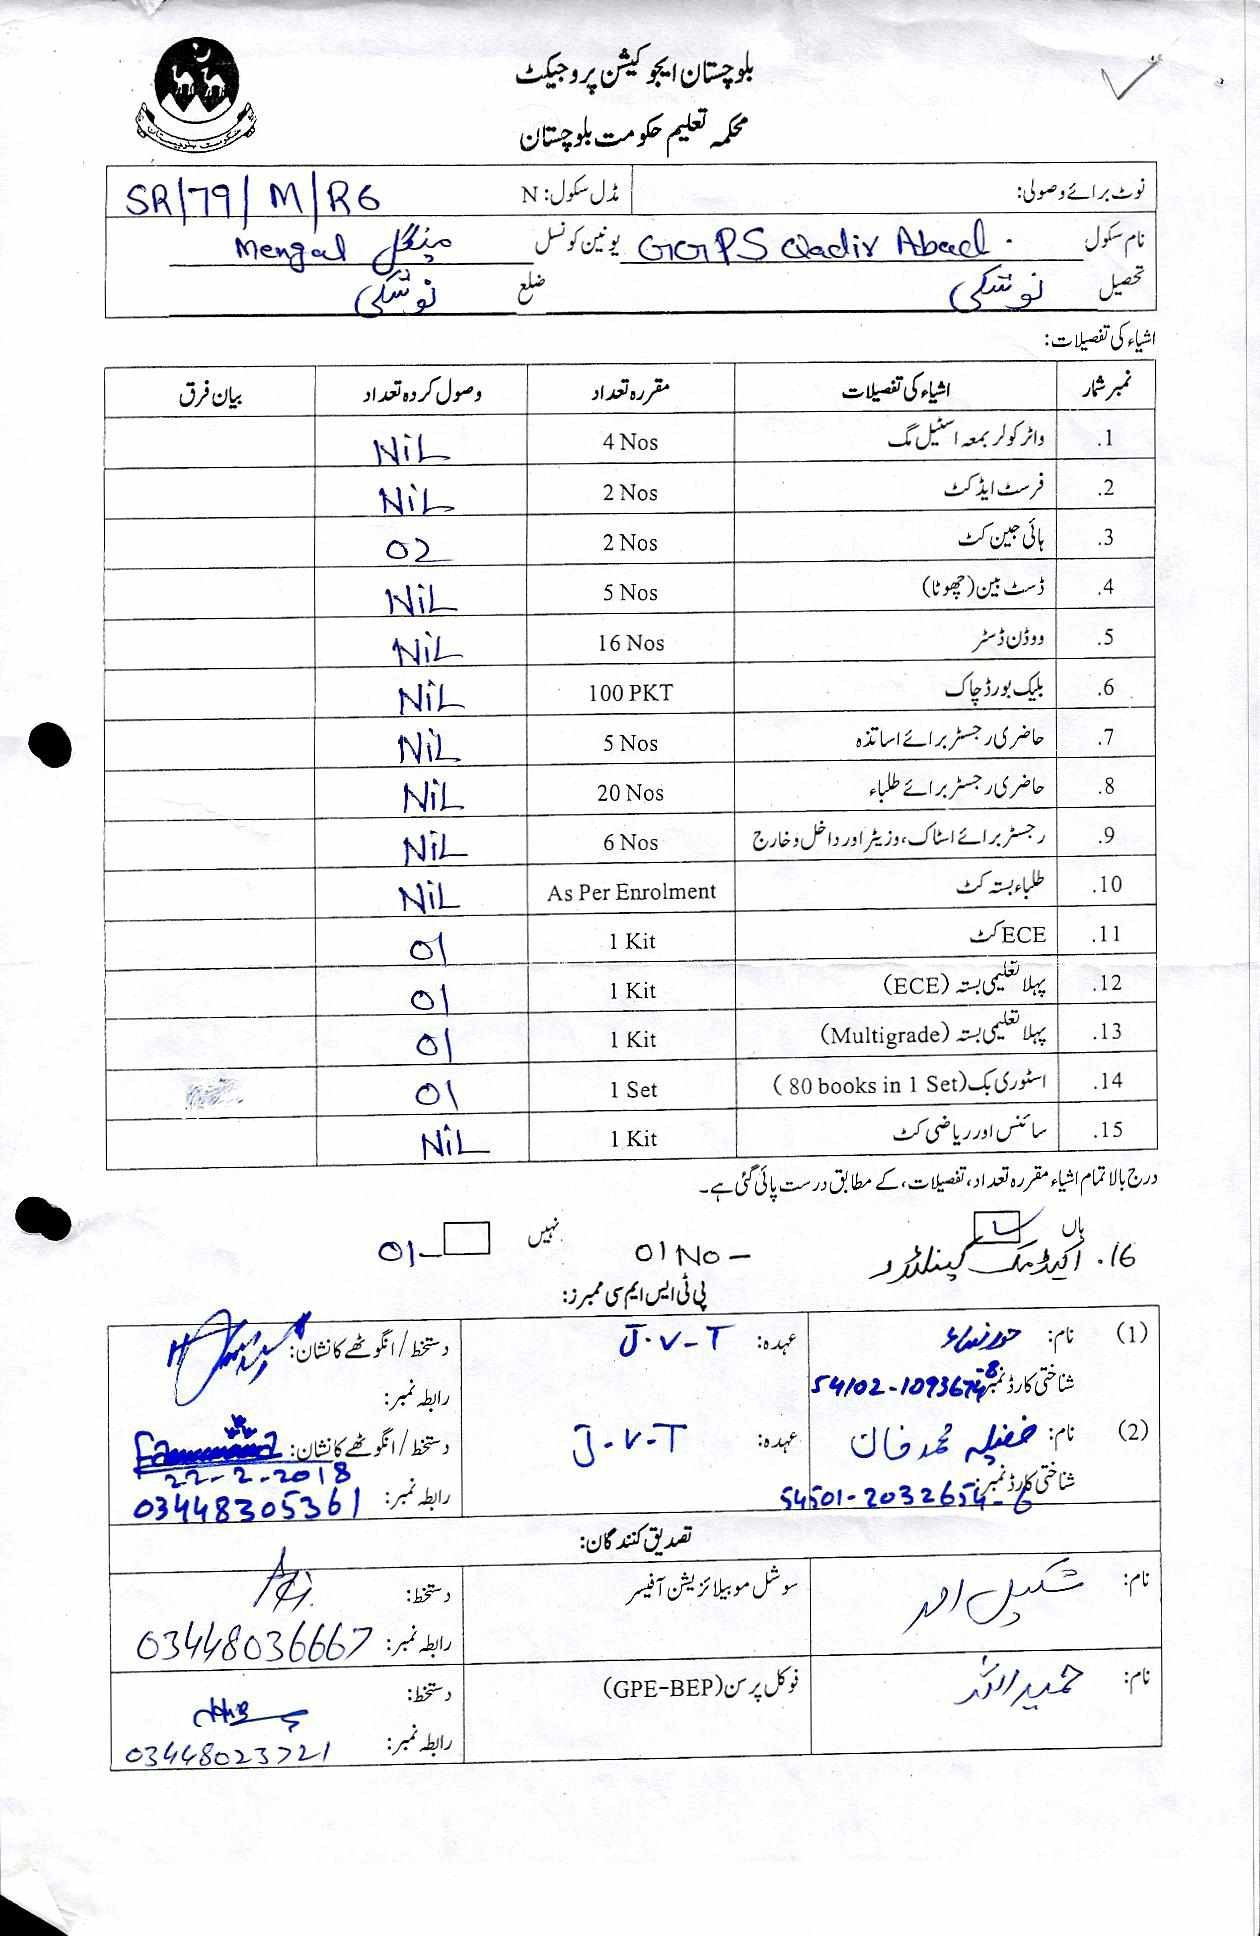 بلوچستان ایجوکیشن پروجیکٹ
محکمہ تعلیم حکومت بلوچستان
حکومت بلوچستان
نوٹ برائے وصولی: مڈل سکول: N SR/79/M/R6
نام سکول GGPS Qadir Abad یونین کونسل مینگل Mengal
تحصیل نوشکی ضلع نوشکی
اشیاء کی تفصیلات:
نمبر شمار اشیاء کی تفصیلات مقررہ تعداد وصول کردہ تعداد بیان فرق
1. واٹر کولر بمعہ اسٹیل مگ 4 Nos NiL
2. فرسٹ ایڈ کٹ 2 Nos NiL
3. ہائی جین کٹ 2 Nos 02
4. ڈسٹ بین (چھوٹا) 5 Nos NiL
5. ووڈن ڈسٹر 16 Nos NiL
6. بلیک بورڈ چاک 100 PKT NiL
7. حاضری رجسٹر برائے اساتذہ 5 Nos NiL
8. حاضری رجسٹر برائے طلباء 20 Nos NiL
9. رجسٹر برائے اسٹاک، وزیٹر اور داخل و خارج 6 Nos NiL
10. طلباء بستہ کٹ As Per Enrolment NiL
11. ECE کٹ 1 Kit 01
12. پہلا تعلیمی بستہ (ECE) 1 Kit 01
13. پہلا تعلیمی بستہ (Multigrade) 1 Kit 01
14. اسٹوری بک (80 books in 1 Set) 1 Set 01
15. سائنس اور ریاضی کٹ 1 Kit NiL
درج بالا تمام اشیاء مقررہ تعداد، تفصیلات، کے مطابق درست پائی گئی ہے۔
ہاں نہیں
16. اکیڈمک کیلنڈر 01 No - 01-
پی ٹی ایس ایم سی ممبرز:
(1) نام: حور نساء عہدہ: J.V-T دستخط / انگوٹھے کا نشان:
شناختی کارڈ نمبر رابطہ نمبر:
(2) نام: فضیلہ محمد خان عہدہ: J-V-T دستخط / انگوٹھے کا نشان:
22-2-2018
شناختی کارڈ نمبر: 54501-2032654-6 رابطہ نمبر: 03448305361
تصدیق کنندگان:
نام: شکیل احمد سوشل موبیلائزیشن آفیسر دستخط:
رابطہ نمبر: 03448036667
نام: حمید اللہ فوکل پرسن (GPE-BEP) دستخط:
رابطہ نمبر: 03448023721